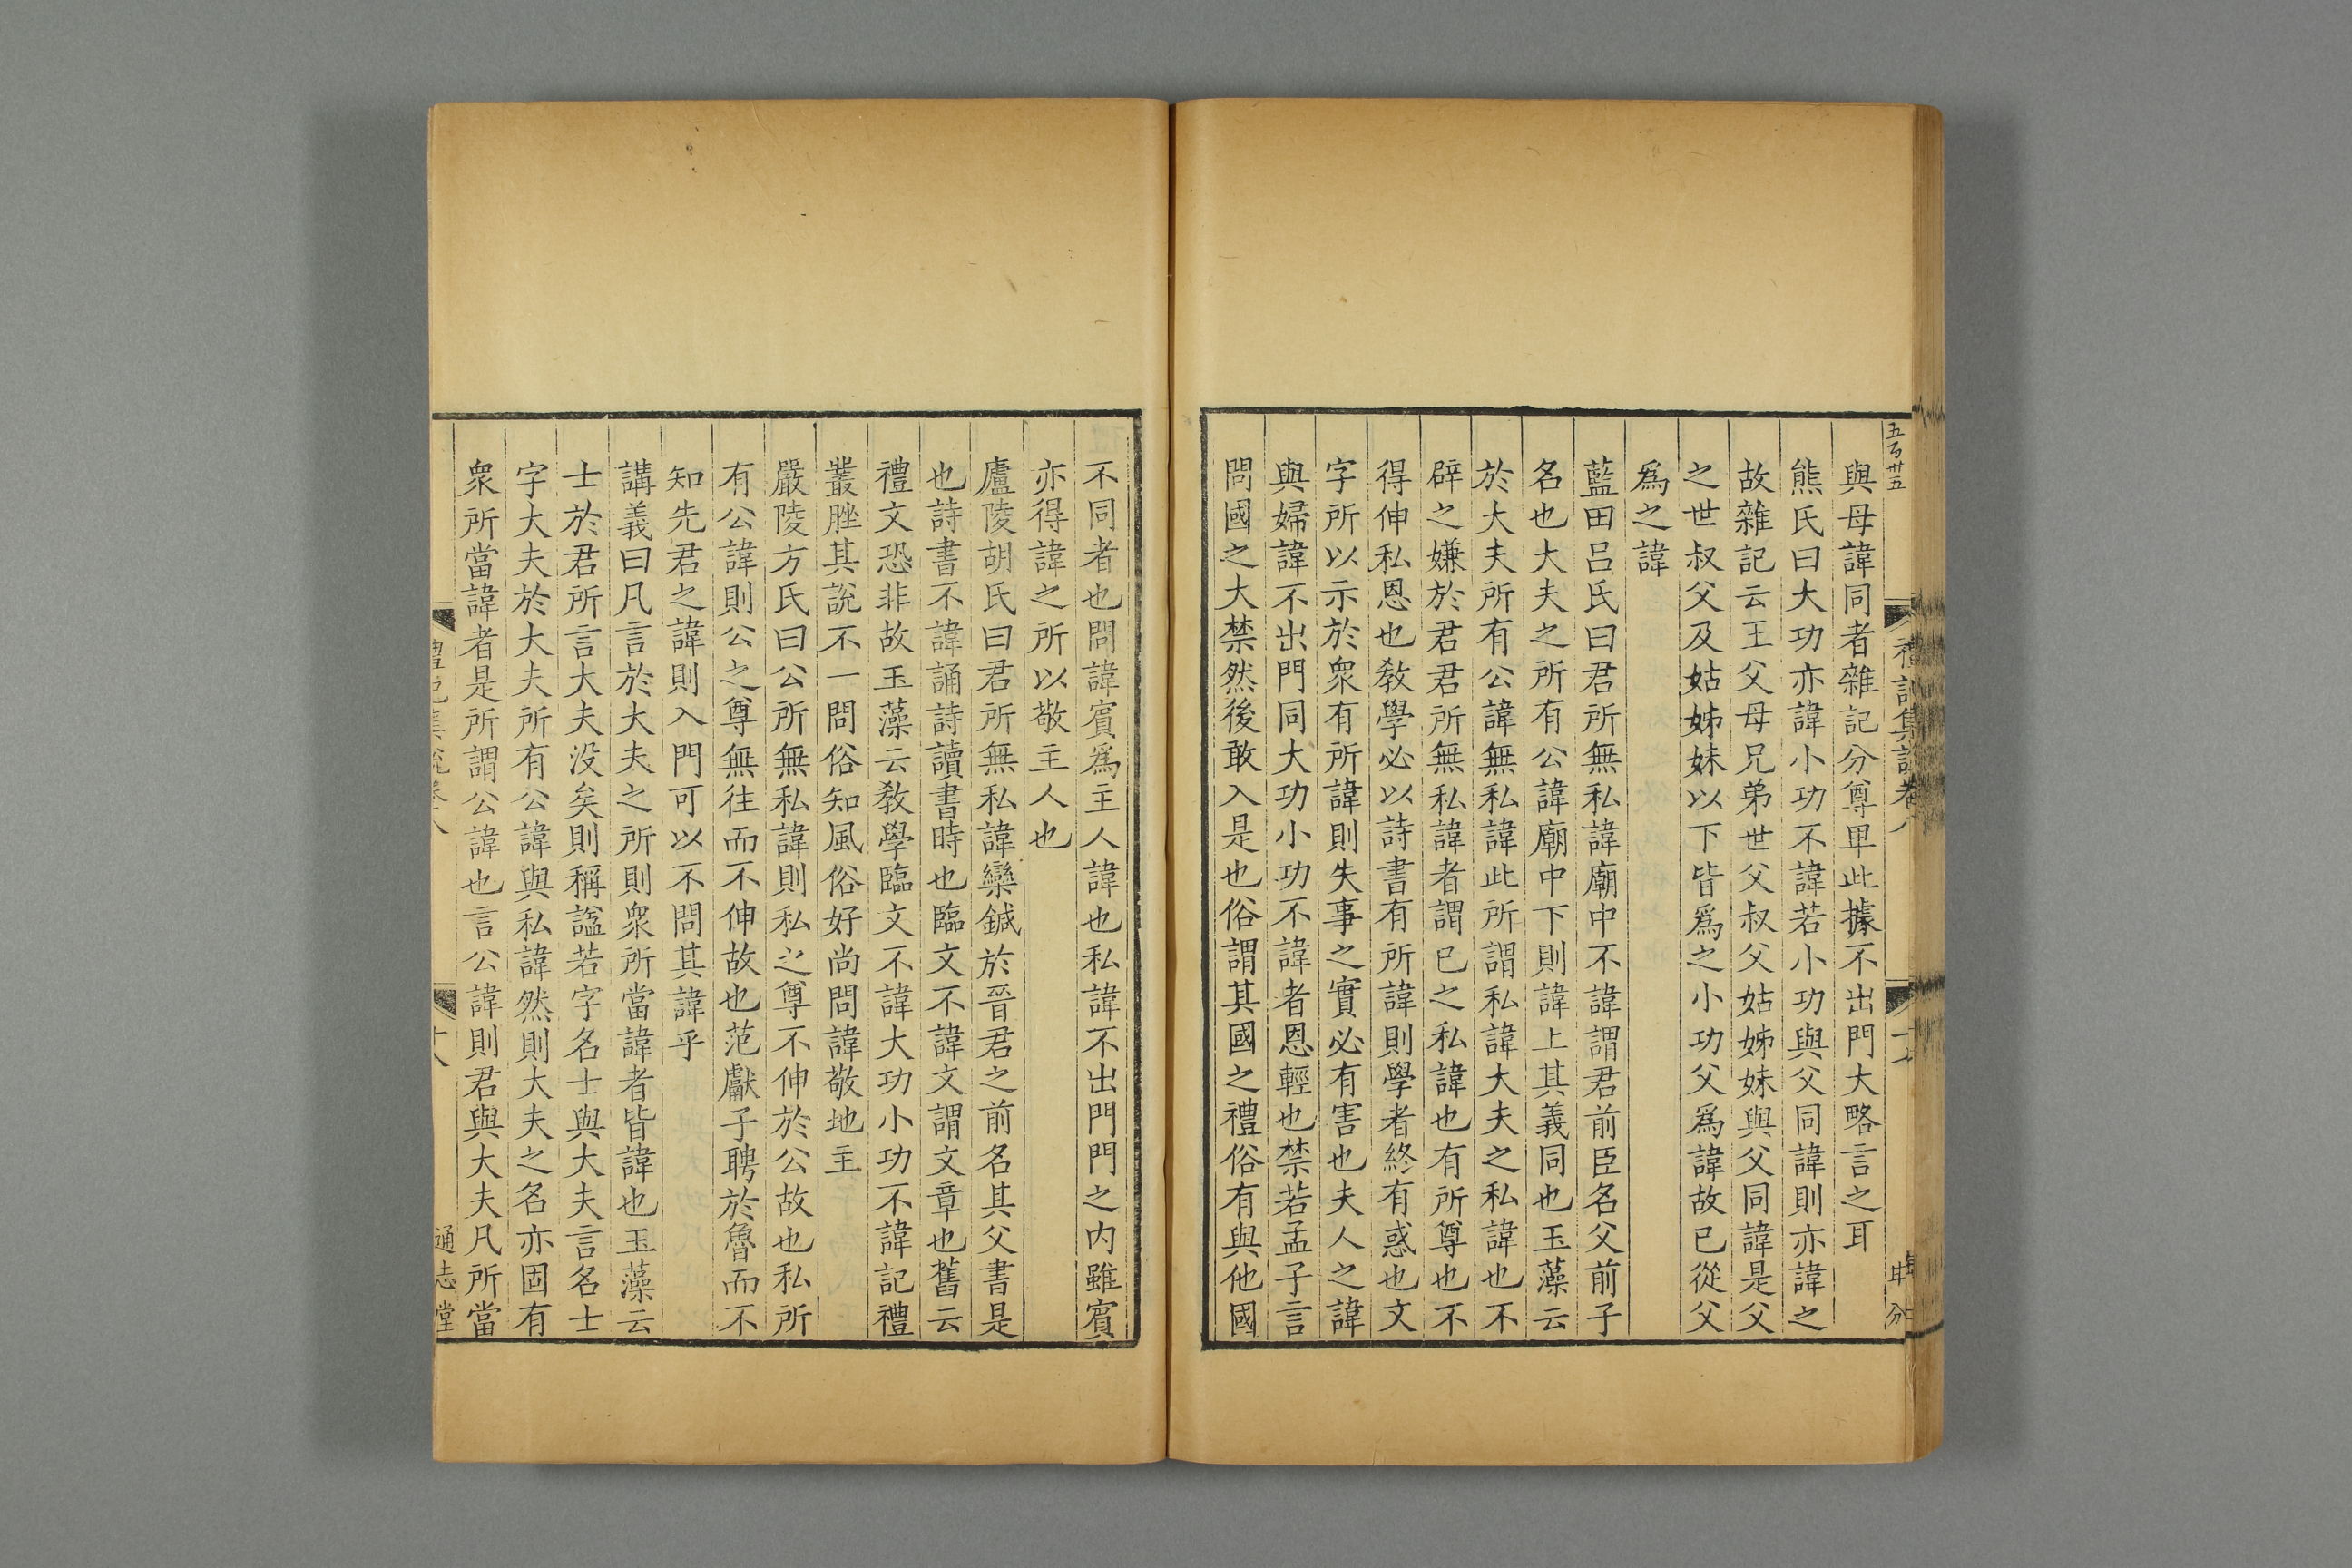 五百卅五
與母諱同者雜記分尊卑此據不出門大略言之耳
熊氏曰大功亦諱小功不諱若小功與父同諱則亦諱之
故雜記云王父母兄弟世父叔父姑姊妹與父同諱是父
之世叔父及姑姊妹以下皆爲之小功父爲諱故已從父
爲之諱
藍田吕氏曰君所無私諱廟中不諱謂君前臣名父前子
名也大夫之所有公諱廟中下則諱上其義同也玉藻云
於大夫所有公諱無私諱此所謂私諱大夫之私諱也不
辟之嫌於君君所無私諱者謂已之私諱也有所尊也不
得伸私恩也教學必以詩書有所諱則學者終有惑也文
字所以示於衆有所諱則失事之實必有害也夫人之諱
與婦諱不出門同大功小功不諱者恩輕也禁若孟子言
問國之大禁然後敢入是也俗謂其國之禮俗有與他國
不同者也問諱賓爲主人諱也私諱不出門門之内雖賓
亦得諱之所以敬主人也
廬陵胡氏曰君所無私諱欒鍼於晉君之前名其父書是
也詩書不諱誦詩讀書時也臨文不諱文謂文章也舊云
禮文恐非故玉藻云教學臨文不諱大功小功不諱記禮
叢脞其說不一問俗知風俗好尚問諱敬地主
嚴陵方氏曰公所無私諱則私之尊不伸於公故也私所
有公諱則公之尊無往而不伸故也范獻子聘於魯而不
知先君之諱則入門可以不問其諱乎
講義曰凡言於大夫之所則衆所當諱者皆諱也玉藻云
士於君所言大夫没矣則稱諡若字名士與大夫言名士
字大夫於大夫所有公諱與私諱然則大夫之名亦固有
衆所當諱者是所謂公諱也言公諱則君與大夫凡所當
禮記集說卷八
十八
通志堂